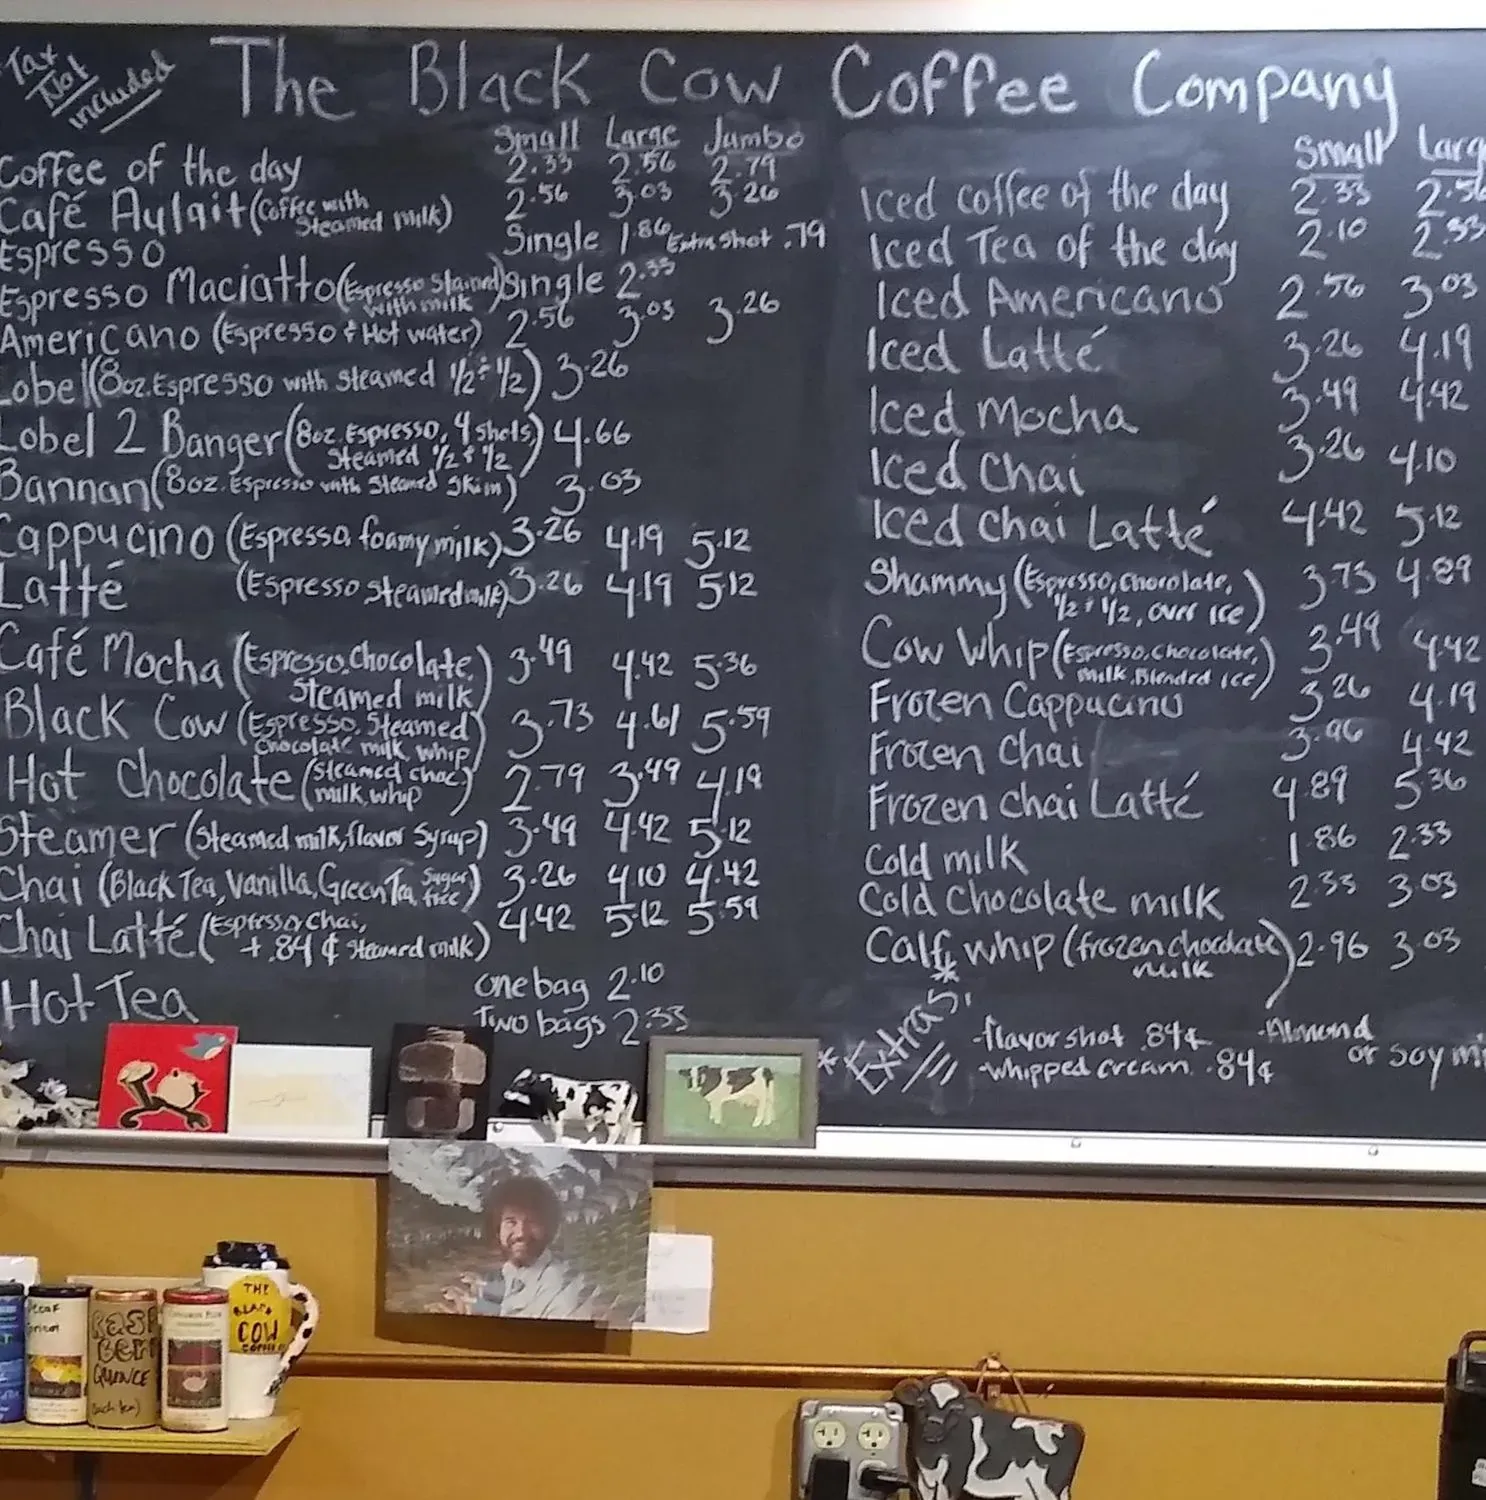 Tax
Not
included
The Black Cow Coffee Company
Small Large Jumbo
Coffee of the day 2.33 2.56 2.79
Café Aulait (Coffee with Steamed milk) 2.56 3.03 3.26
Espresso Single 1.86 Extra Shot .79
Espresso Maciatto (Espresso Stained with milk) Single 2.33
Americano (Espresso + Hot water) 2.56 3.03 3.26
Lobell (8oz. Espresso with Steamed 1/2 + 1/2) 3.26
Lobel 2 Banger (8oz. Espresso, 4 shots, Steamed 1/2 + 1/2) 4.66
Bannan (8oz. Espresso with Steamed Skim) 3.03
Cappucino (Espresso, foamy milk) 3.26 4.19 5.12
Latté (Espresso Steamed milk) 3.26 4.19 5.12
Café Mocha (Espresso, Chocolate, Steamed milk) 3.49 4.42 5.36
Black Cow (Espresso, Steamed Chocolate milk, whip) 3.73 4.61 5.59
Hot Chocolate (Steamed choc milk, whip) 2.79 3.49 4.19
Steamer (Steamed milk, flavor Syrup) 3.49 4.42 5.12
Chai (Black Tea, Vanilla, Green Tea, Sugar free) 3.26 4.10 4.42
Chai Latté (Espresso, Chai, + .84¢ Steamed milk) 4.42 5.12 5.59
Hot Tea one bag 2.10
Two bags 2.33
Small Larg
Iced coffee of the day 2.33 2.56
Iced Tea of the day 2.10 2.33
Iced Americano 2.56 3.03
Iced Latté 3.26 4.19
Iced Mocha 3.49 4.42
Iced Chai 3.26 4.10
Iced Chai Latté 4.42 5.12
Shammy (Espresso, Chocolate, 1/2 + 1/2, over ice) 3.73 4.89
Cow Whip (Espresso, chocolate, milk, Blended ice) 3.49 4.42
Frozen Cappucino 3.26 4.19
Frozen Chai 3.96 4.42
Frozen Chai Latté 4.89 5.36
Cold milk 1.86 2.33
Cold Chocolate milk 2.33 3.03
Calf whip (frozen chocolate milk) 2.96 3.03
* Extras! *
-flavor shot .84¢
-whipped cream .84¢
-Almond
or Soy mi
Decaf
QUINCE
THE
BLACK
COW
COFFEE